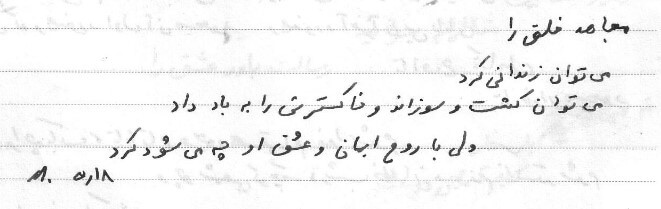 مجاهد خلق را
می‌توان زندانی کرد
می‌توان کشت و سوزاند و خاکسترش را به باد داد
ولی با روح ایمان و عشق او چه می‌شود کرد
۵/۱۸